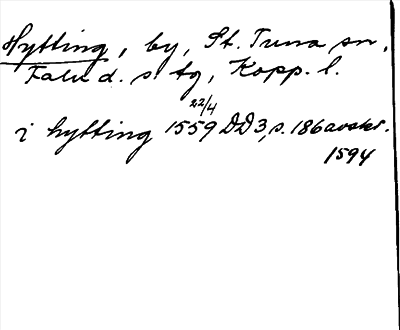 Hytting, by, St. Tuna sn,
Falu d. s tg, Kopp. l.
22/4
i hytting 1559 DD3, s. 186 avskr.
1594